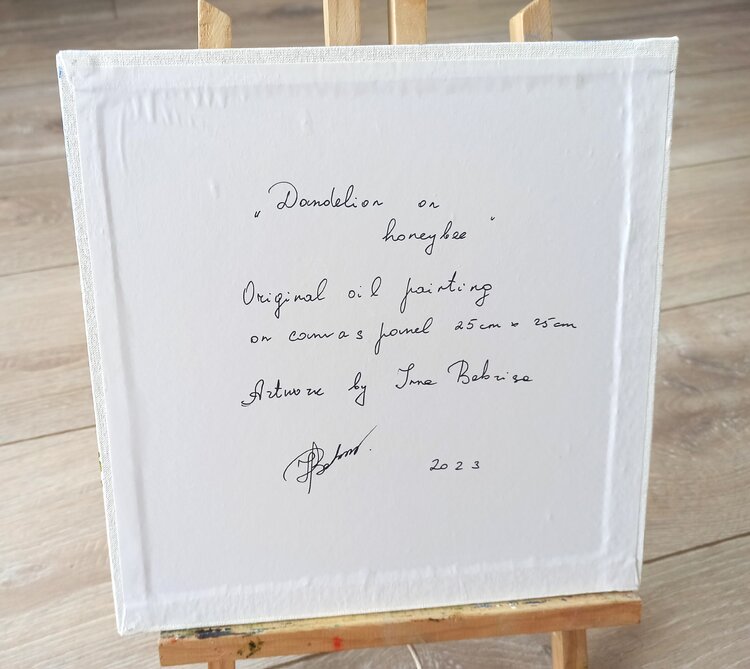 „Dandelion on
honeybee"
Original oil painting
on canvas panel 25cm x 25cm
Artwork by Inna Bebrisa
2023